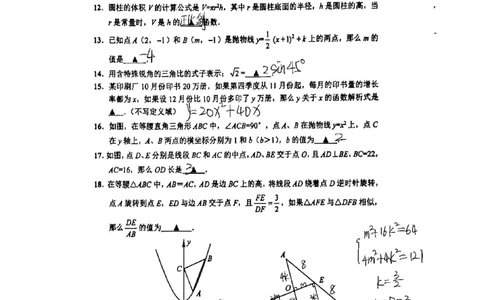 12. 圆柱的体积 V 的计算公式是 V=πr²h，其中 r 是圆柱底面的半径，h 是圆柱的高，当
r 是常量时，V 是 h 的 ▲ 函数.
13. 已知点 A（2，-1）和 B（m，-1）是抛物线 y=1/2 (x+1)²+k 上的两点，那么 m 的
值是 ▲ -4
14. 用含特殊锐角的三角比的式子表示：√2= ▲ 2sin45°
15. 某印刷厂 10 月份印书 20 万册，如果第四季度从 11 月份起，每月的印书量的增长
率都为 x，如果设 12 月份比 10 月份多印了 y 万册，那么 y 关于 x 的函数解析式是
▲ .（不写定义域） y=20x²+40x
16. 如图，在等腰直角三角形 ABC 中，∠ACB=90°，点 A、B 在抛物线 y=x² 上，点 C
在 y 轴上，A、B 两点的横坐标分别为 1 和 b（b>1），b 的值为 ▲ 2
17. 如图，点 D、E 分别是线段 BC 和 AC 的中点，AD、BE 交于点 O，且 AD⊥BE. BC=22，
AC=16，那么 OD 长是 ▲ .
18. 在等腰△ABC 中，AB=AC，AD 是边 BC 上的高，将线段 AD 绕着点 D 逆时针旋转，
点 A 旋转到点 E，ED 与边 AB 交于点 F，且 FE/DF = 3/2，如果△AFE 与△DFB 相似，
那么 DE/AB 的值为 ▲ .
m²+16k²=64
4m²+4k²=121
k=3/2
y
C
B
A
A
8
4k
O
E
8